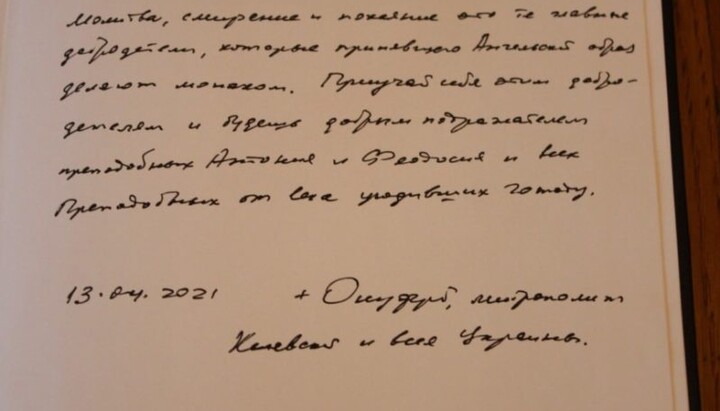 Молитва, смирение и покаяние это те главные
добродетели, которые принявшего Ангельский образ
делают монахом. Приучай себя этим добро-
детелям и будешь добрым подражателем
преподобных Антония и Феодосия и всех
Преподобных от века угодивших Господу.
13.04.2021 + Онуфрий, митрополит
Киевский и всея Украины.